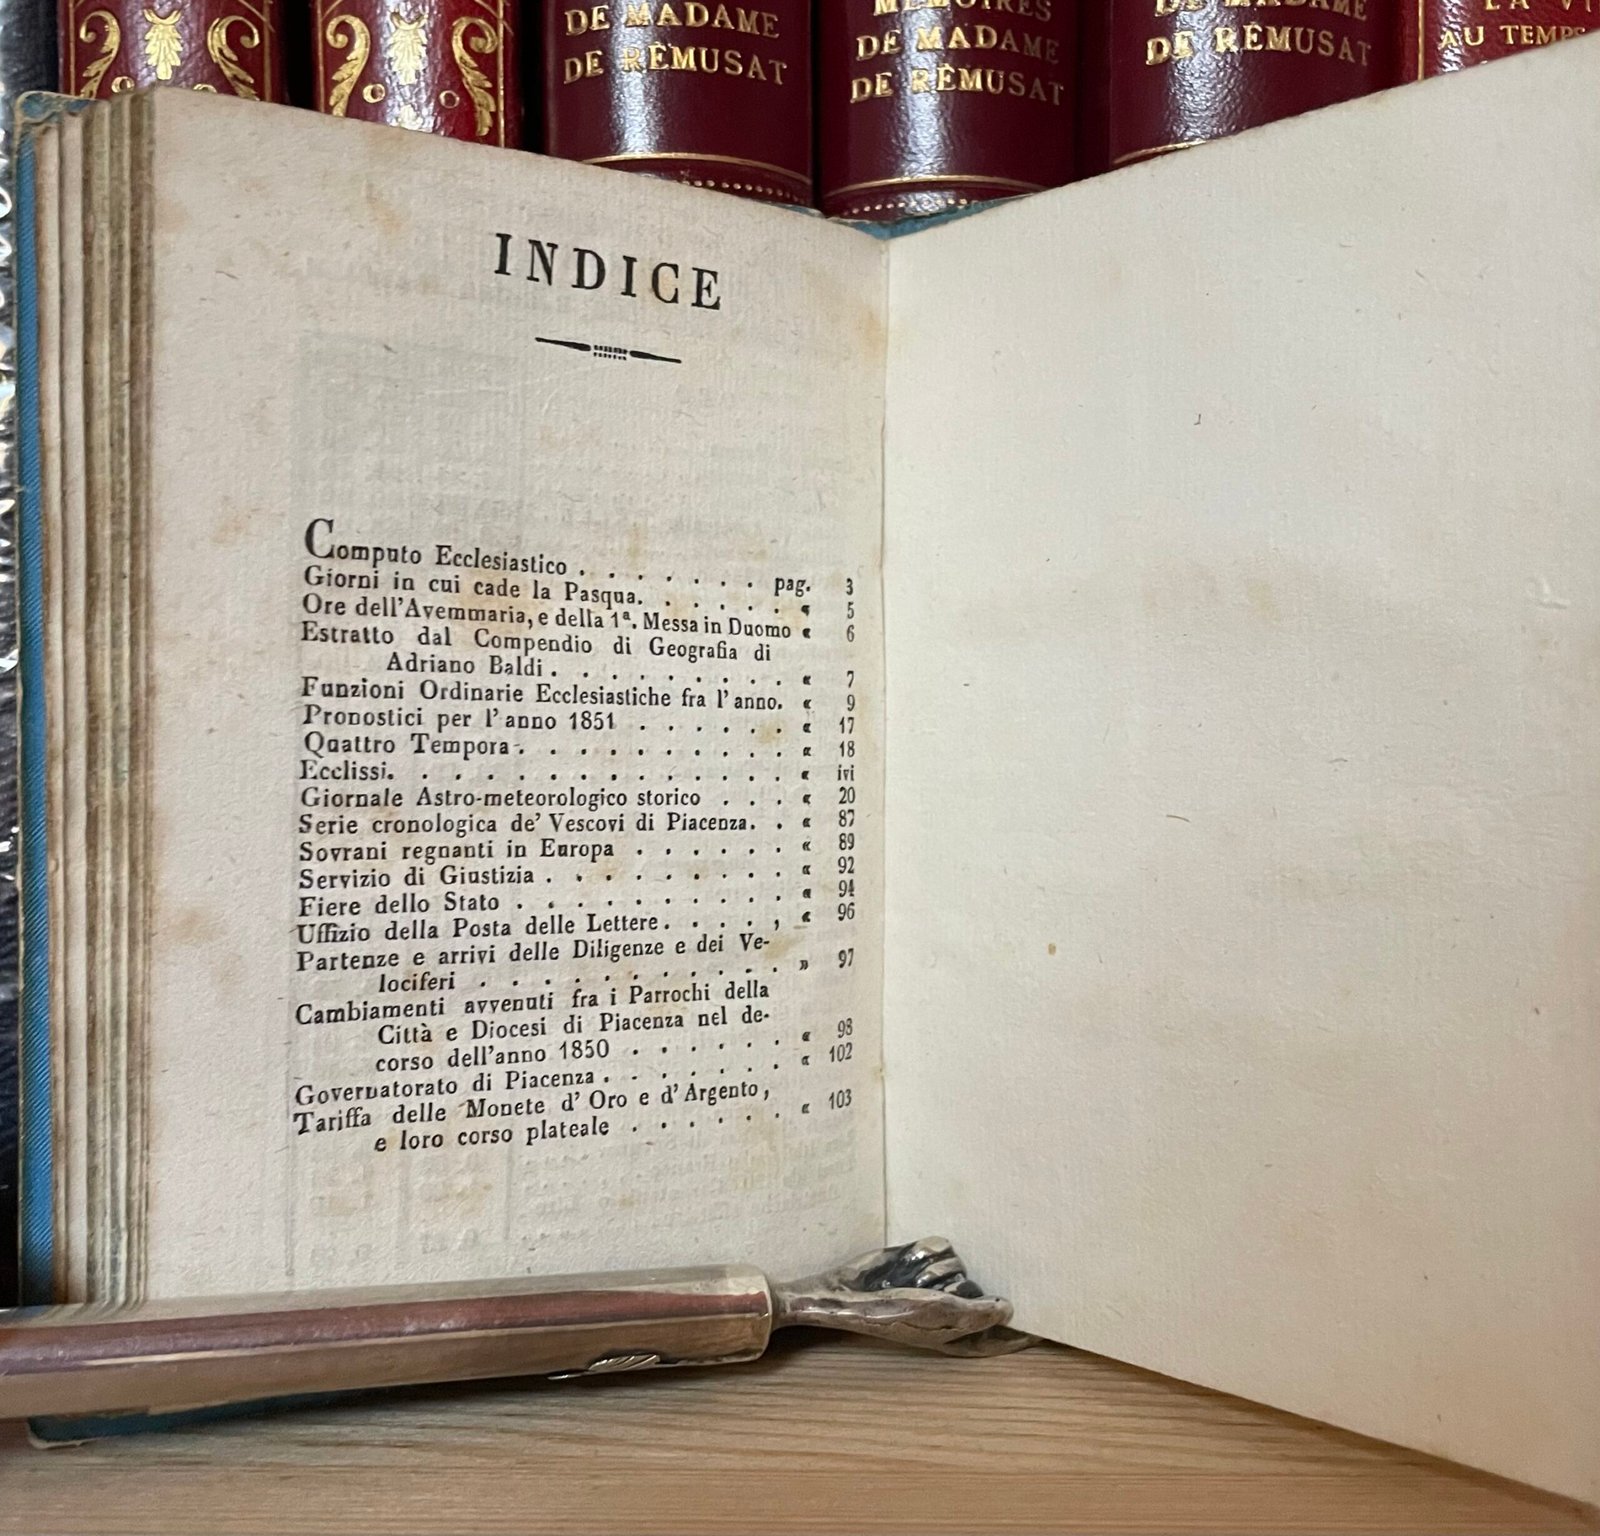 DE MADAME
DE RÉMUSAT
MÉMOIRES
DE MADAME
DE RÉMUSAT
DE MADAME
DE RÉMUSAT
LA VI
AU TEMPS
INDICE
Computo Ecclesiastico . . . . . . . pag. 3
Giorni in cui cade la Pasqua. . . . . . « 5
Ore dell'Avemmaria, e della 1ª. Messa in Duomo « 6
Estratto dal Compendio di Geografia di
Adriano Baldi . . . . . . . . . « 7
Funzioni Ordinarie Ecclesiastiche fra l'anno. « 9
Pronostici per l'anno 1851 . . . . . . « 17
Quattro Tempora . . . . . . . . . . « 18
Ecclissi. . . . . . . . . . . . . . « ivi
Giornale Astro-meteorologico storico . . . « 20
Serie cronologica de' Vescovi di Piacenza. . « 87
Sovrani regnanti in Europa . . . . . . « 89
Servizio di Giustizia . . . . . . . . . « 92
Fiere dello Stato . . . . . . . . . . « 94
Uffizio della Posta delle Lettere . . . . , « 96
Partenze e arrivi delle Diligenze e dei Ve-
lociferi . . . . . . . . . . . » 97
Cambiamenti avvenuti fra i Parrochi della
Città e Diocesi di Piacenza nel de-
corso dell'anno 1850 . . . . . . « 98
Governatorato di Piacenza . . . . . . . « 102
Tariffa delle Monete d'Oro e d'Argento,
e loro corso plateale . . . . . . « 103